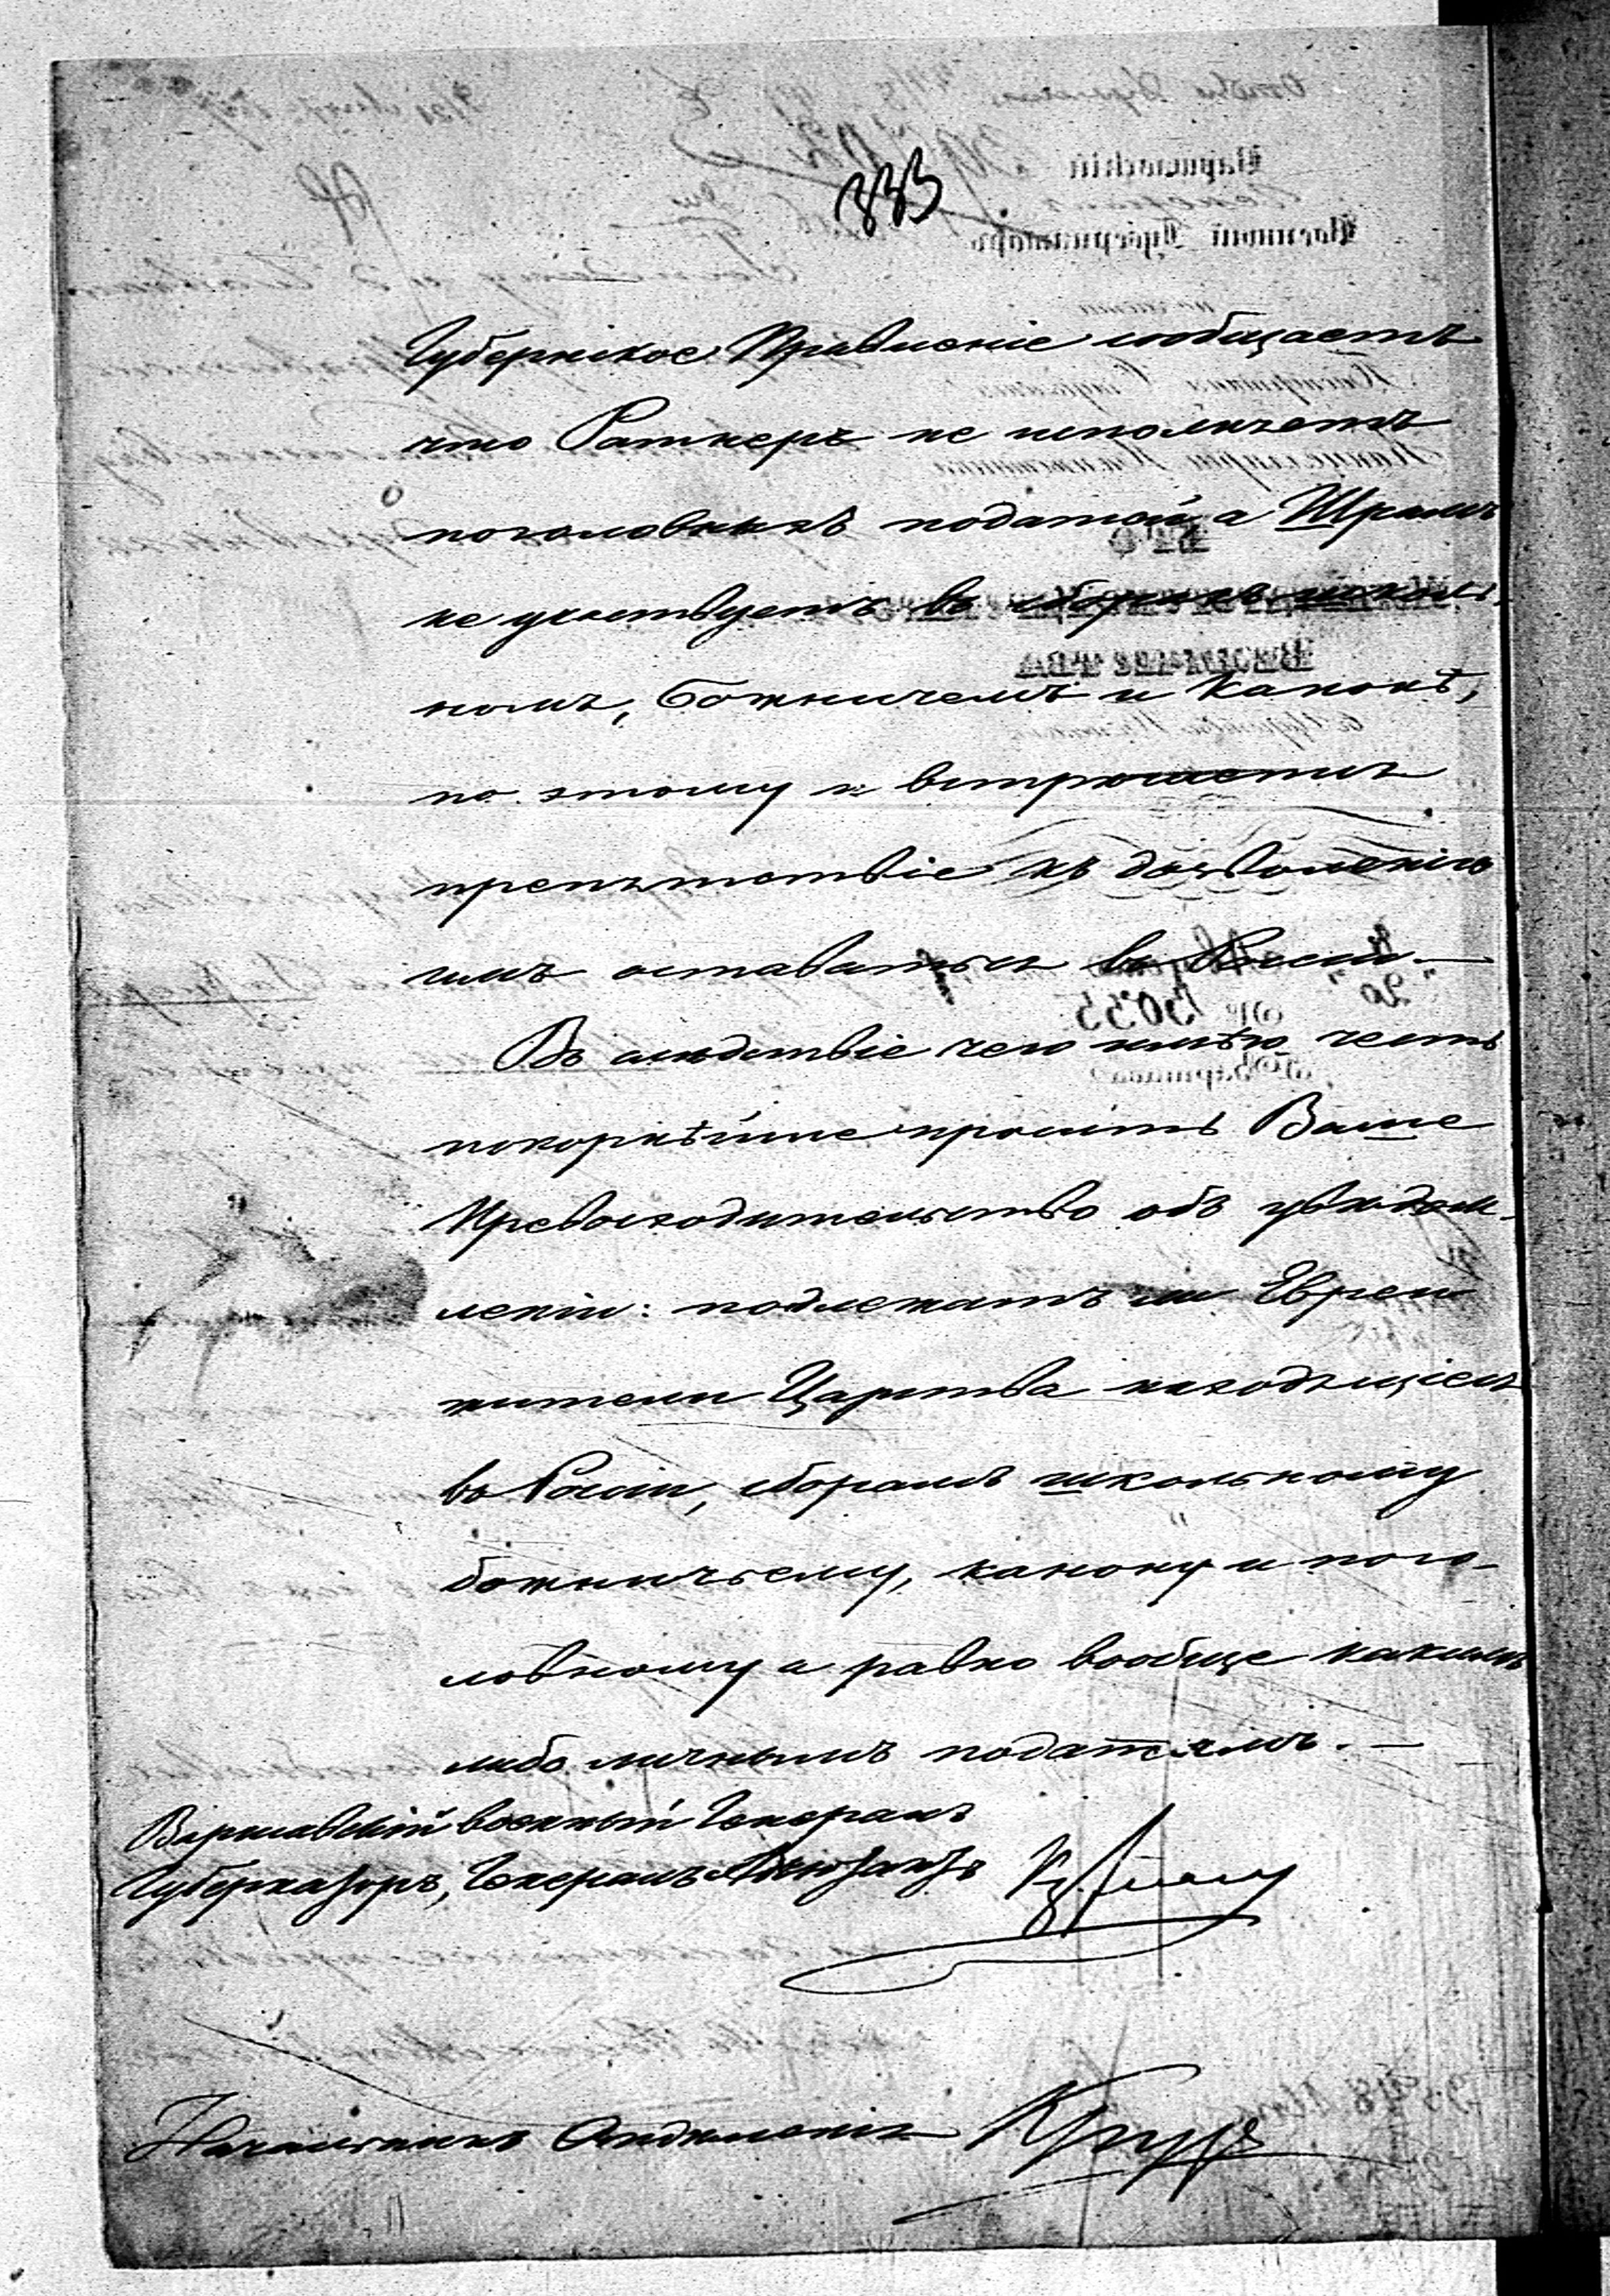 333
Губернское Правленіе сообщаетъ
что Ратнеръ не
поголовныхъ податей, а Шрамъ
не участвуетъ въ сборахъ школь-
номъ, божничемъ и Канонѣ,
по этому и встрѣчаетъ
препятствіе къ дозволенію
имъ оставаться въ Россіи.—
Въ слѣдствіе чего имѣю честь
покорнѣйше просить Ваше
Превосходительство объ увѣдом-
леніи: подлежатъ ли Евреи
жители Царства находящіеся
въ Россіи, сборамъ школьному
божничьему, канону и пого-
ловному и равно вообще какимъ
либо личнымъ податямъ.—
Варшавскій военный Генералъ
Губернаторъ, Генералъ Адъютантъ
Начальникъ Отдѣленія